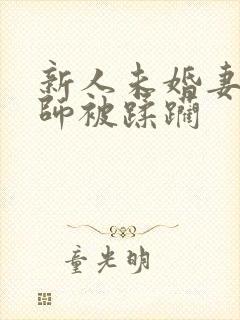 新人未婚妻
师被蹂躏
童光明